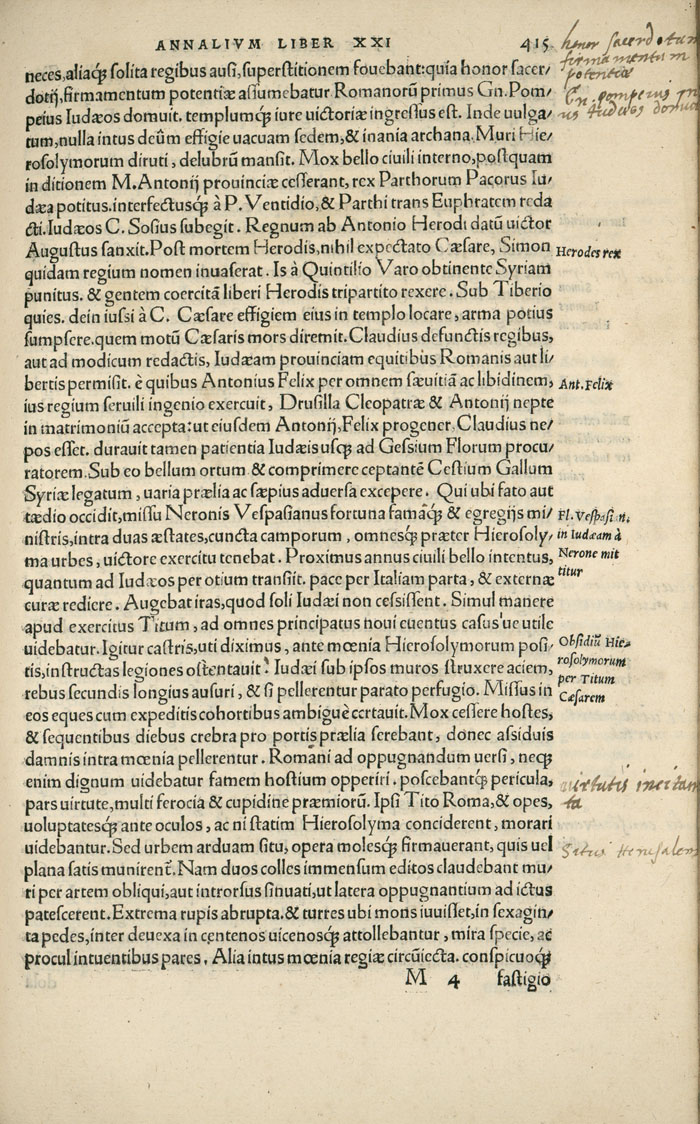 ANNALIVM LIBER XXI 415
neces, aliaqꝫ solita regibus ausi, superstitionem fouebant: quia honor sacer/
dotij, firmamentum potentiæ assumebatur Romanorũ primus Gn. Pom/
peius Iudæos domuit, templumqꝫ iure uictoriæ ingressus est. Inde uulga/
tum, nulla intus deûm effigie uacuam sedem, & inania archana. Muri Hie/
rosolymorum diruti, delubrũ mansit. Mox bello ciuili interno, postquam
in ditionem M. Antonij prouinciæ cesserant, rex Parthorum Pacorus Iu/
dæa potitus. interfectusqꝫ à P. Ventidio, & Parthi trans Euphratem reda
cti. Iudæos C. Sosius subegit. Regnum ab Antonio Herodi datũ uictor
Augustus sanxit. Post mortem Herodis, nihil expectato Cæsare, Simon
quidam regium nomen inuaserat. Is à Quintilio Varo obtinente Syriam
punitus. & gentem coercitã liberi Herodis tripartito rexere. Sub Tiberio
quies. dein iussi à C. Cæsare effigiem eius in templo locare, arma potius
sumpsere. quem motũ Cæsaris mors diremit. Claudius defunctis regibus,
aut ad modicum redactis, Iudæam prouinciam equitibus Romanis aut li/
bertis permisit. è quibus Antonius Felix per omnem sæuitiã ac libidinem,
ius regium seruili ingenio exercuit, Drusilla Cleopatræ & Antonij nepte
in matrimoniũ accepta: ut eiusdem Antonij, Felix progener, Claudius ne/
pos esset. durauit tamen patientia Iudæis usqꝫ ad Gessium Florum procu/
ratorem. Sub eo bellum ortum & comprimere ceptantẽ Cestium Gallum
Syriæ legatum, uaria prælia ac sæpius aduersa excepere. Qui ubi fato aut
tædio occidit, missu Neronis Vespasianus fortuna famaqꝫ & egregijs mi/
nistris, intra duas æstates, cuncta camporum, omnesqꝫ præter Hierosoly/
ma urbes, uictore exercitu tenebat. Proximus annus ciuili bello intentus,
quantum ad Iudæos per otium transiit. pace per Italiam parta, & externæ
curæ rediere. Augebat iras, quod soli Iudæi non cessissent. Simul manere
apud exercitus Titum, ad omnes principatus noui euentus casus'ue utile
uidebatur. Igitur castris, uti diximus, ante mœnia Hierosolymorum posi/
tis, instructas legiones ostentauit. Iudæi sub ipsos muros struxere aciem,
rebus secundis longius ausuri, & si pellerentur parato perfugio. Missus in
eos eques cum expeditis cohortibus ambiguè certauit. Mox cessere hostes,
& sequentibus diebus crebra pro portis prælia serebant, donec assiduis
damnis intra mœnia pellerentur. Romani ad oppugnandum uersi, neqꝫ
enim dignum uidebatur famem hostium opperiri. poscebantqꝫ pericula,
pars uirtute, multi ferocia & cupidine præmiorũ. Ipsi Tito Roma, & opes,
uoluptatesqꝫ ante oculos, ac ni statim Hierosolyma conciderent, morari
uidebantur. Sed urbem arduam situ, opera molesqꝫ firmauerant, quis uel
plana satis munirent. Nam duos colles immensum editos claudebant mu/
ri per artem obliqui, aut introrsus sinuati, ut latera oppugnantium ad ictus
patescerent. Extrema rupis abrupta. & turres ubi mons iuuisset, in sexagin/
ta pedes, inter deuexa in centenos uicenosqꝫ attollebantur, mira specie, ac
procul intuentibus pares. Alia intus mœnia regiæ circũiecta. conspicuoqꝫ
M 4 fastigio
honor sacerdotum
firmamentum
potentiæ
Gn. pompeius
us Iudæos domuit
Herodes rex
Ant. Felix
Fl. Vespasian,
in Iudæam à
Nerone mit
titur
Obsidiũ Hie-
rosolymorum
per Titum
Cæsarem
uirtutis incitam
ta
Situs Herusalem